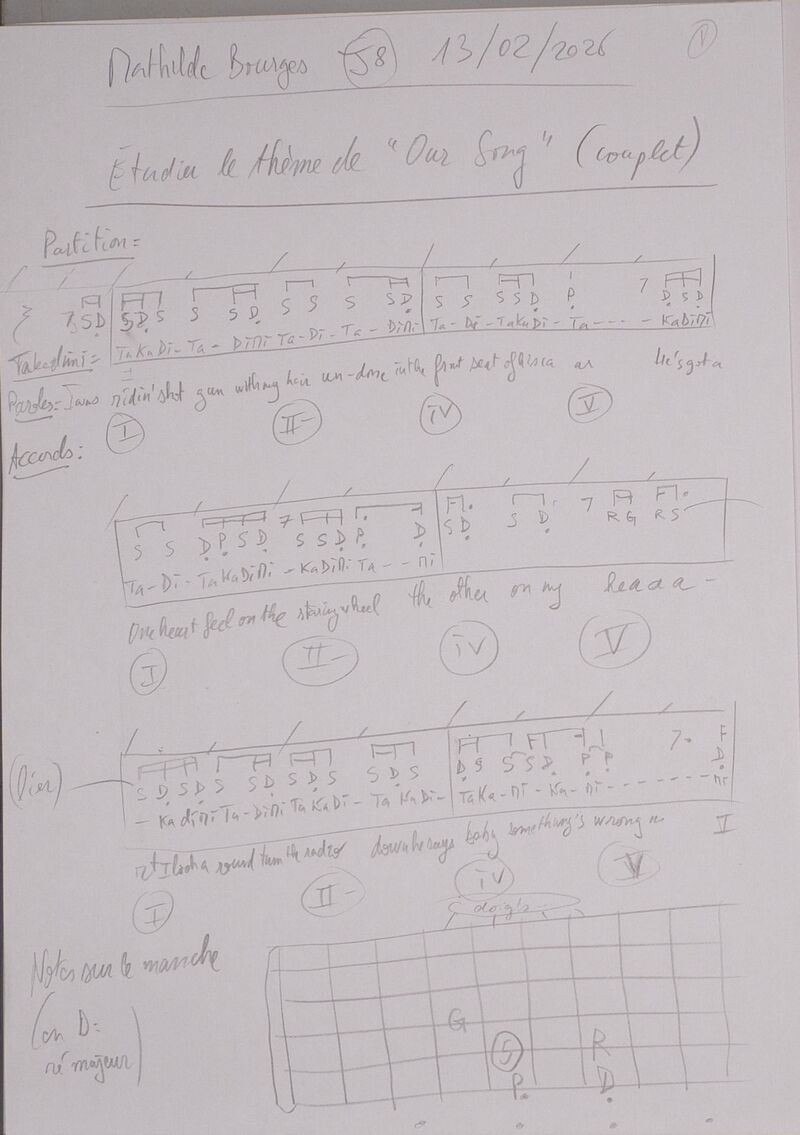 Mathilde Bourges J8 13/02/2026
Étudier le thème de "Our Song" (couplet)
Partition =
7 S D S D S S S D S S S S D S S S S D P 7 D S D
Takadimi = Ta Ka Di - Ta - Di Mi Ta - Di - Ta - Di Mi Ta - Di - Ta Ka Di - Ta - - - - Ka Di Mi
Paroles = I was ridin' shot gun with my hair un-done in the front seat of his ca ar He's got a
Accords : I II- IV V
S S D P S D 7 S S D P D S D S D 7 R G R S
Ta - Di - Ta Ka Di Mi - Ka Di Mi Ta - - Mi
One heart feel on the stering wheel the other on my heaaa -
I II- IV V
(lier) S D S D S S D S D S S D S D S S S D P P 7 D
- Ka di Mi Ta - Di Mi Ta Ka Di - Ta Ka Di - Ta Ka - Mi - Ka - Mi - - - - - - - Mi
I look a round turn the radio down he says baby something's wrong V
I II- IV V
doigts
Notes sur le manche
(en D =
ré majeur)
G
S R
P D